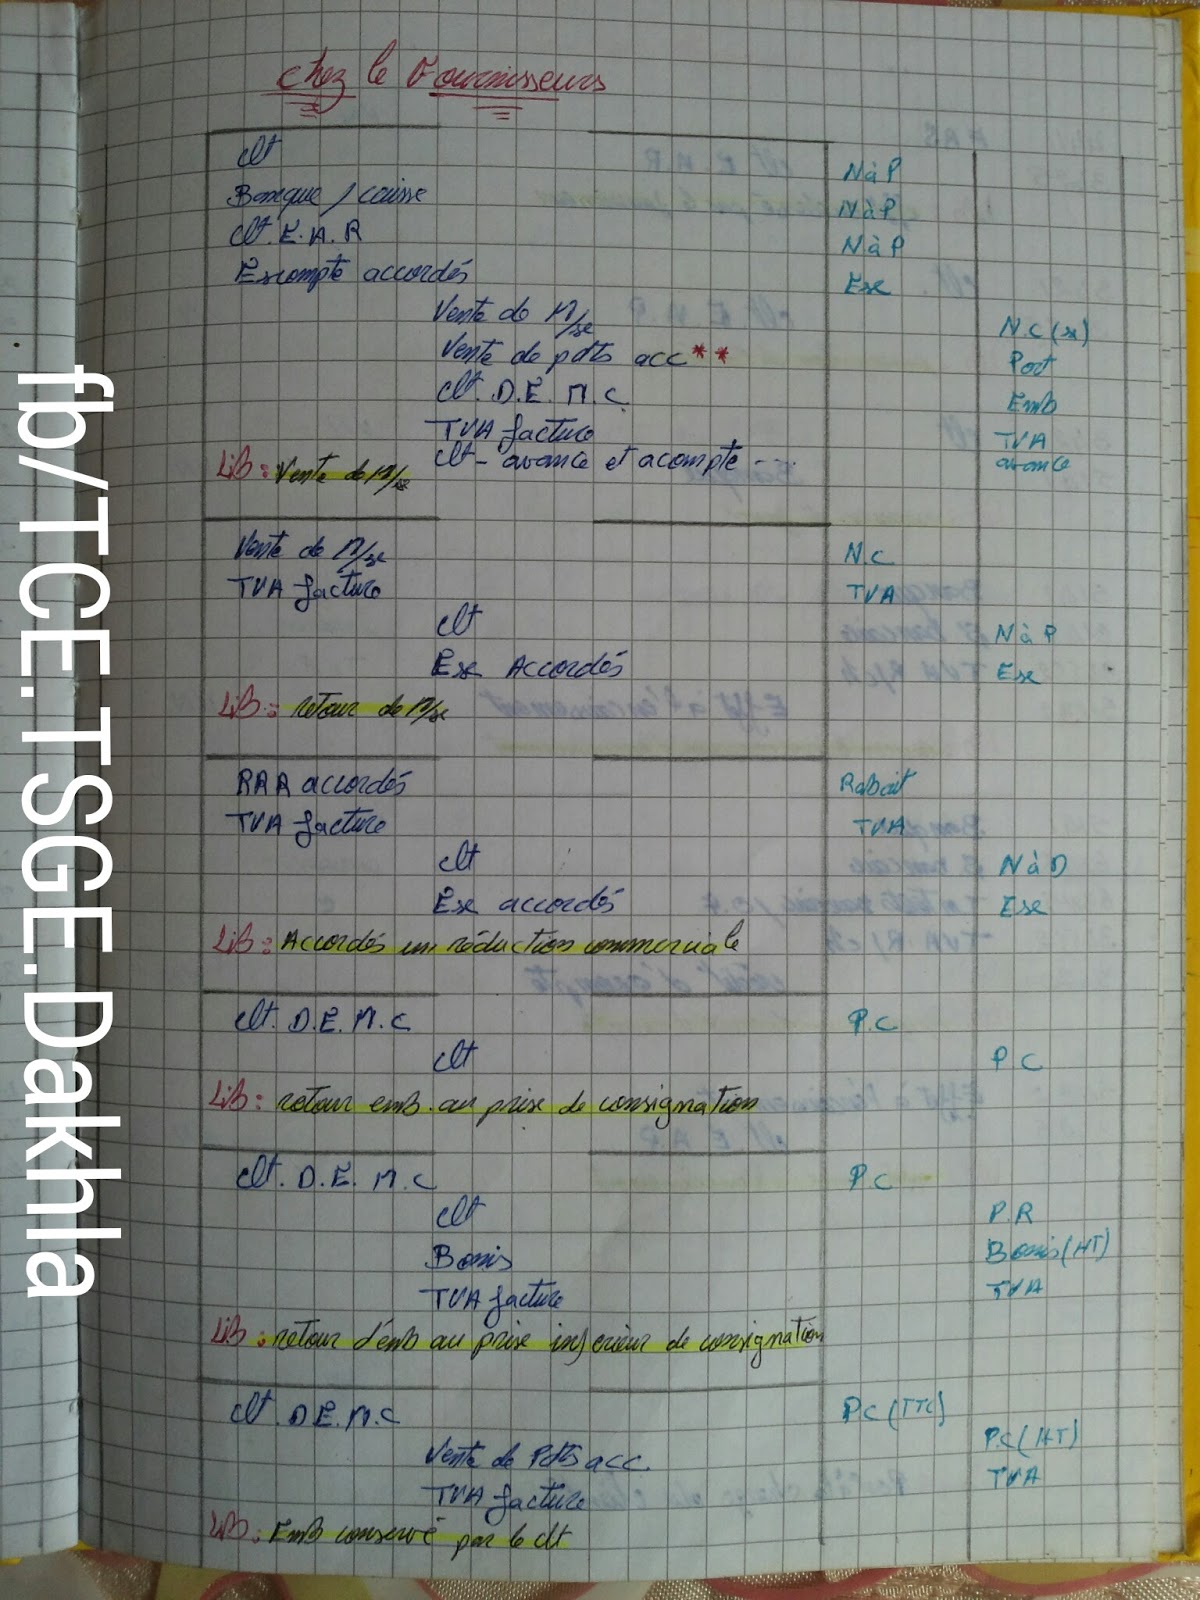 Chez le Fournisseurs
clt NàP
Banque / caisse NàP
clt. E. A. R NàP
Escompte accordés Esc
Vente de M/se N.C(x)
Vente de pdts acc** Port
clt. D. E. M. C. Emb
TVA facture TVA
clt - avance et acompte avance
LiB: Vente de M/se
Vente de M/se N.C
TVA facture TVA
clt NàP
Esc Accordés Esc
LiB: retour de M/se
RRR accordés Rabait
TVA facture TVA
clt NàD
Esc accordés Esc
LiB: Accordés un réduction commerciale
clt. D. E. M. C P.C
clt P C
LiB: retour emb. au prixe de consignation
clt. D. E. M. C P.C
clt P.R
Bonis Bonis(HT)
TVA facture TVA
LiB: retour d'emb au prixe inférieur de consignation
clt. D.E.M.C P.C (TTC)
Vente de Pdts acc. P.C (HT)
TVA facture TVA
LiB: Emb conservé par le clt
fb/TCE.TSGE.Dakhla